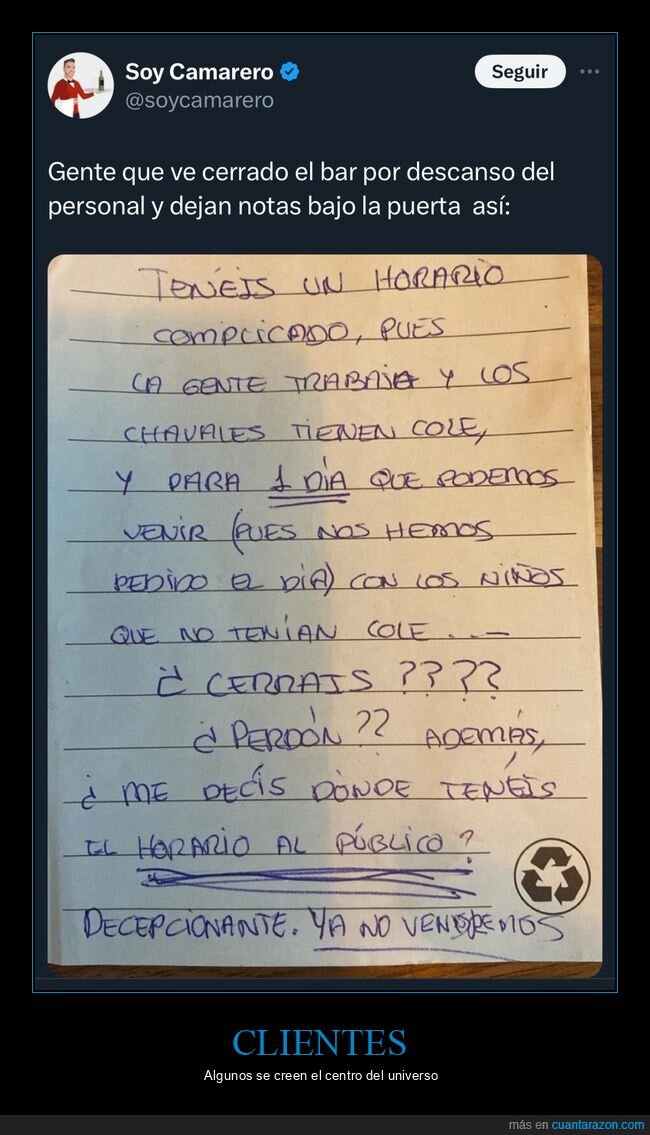 Soy Camarero
@soycamarero
Seguir
Gente que ve cerrado el bar por descanso del
personal y dejan notas bajo la puerta así:
TENÉIS UN HORARIO
COMPLICADO, PUES
LA GENTE TRABAJA Y LOS
CHAVALES TIENEN COLE,
Y PARA 1 DÍA QUE PODEMOS
VENIR (PUES NOS HEMOS
PEDIDO EL DÍA) CON LOS NIÑOS
QUE NO TENÍAN COLE...—
¿ CERRAIS ????
¿ PERDÓN ?? ADEMÁS,
¿ ME DECÍS DÓNDE TENÉIS
EL HORARIO AL PÚBLICO ?
DECEPCIONANTE. YA NO VENDREMOS
CLIENTES
Algunos se creen el centro del universo
más en cuantarazon.com